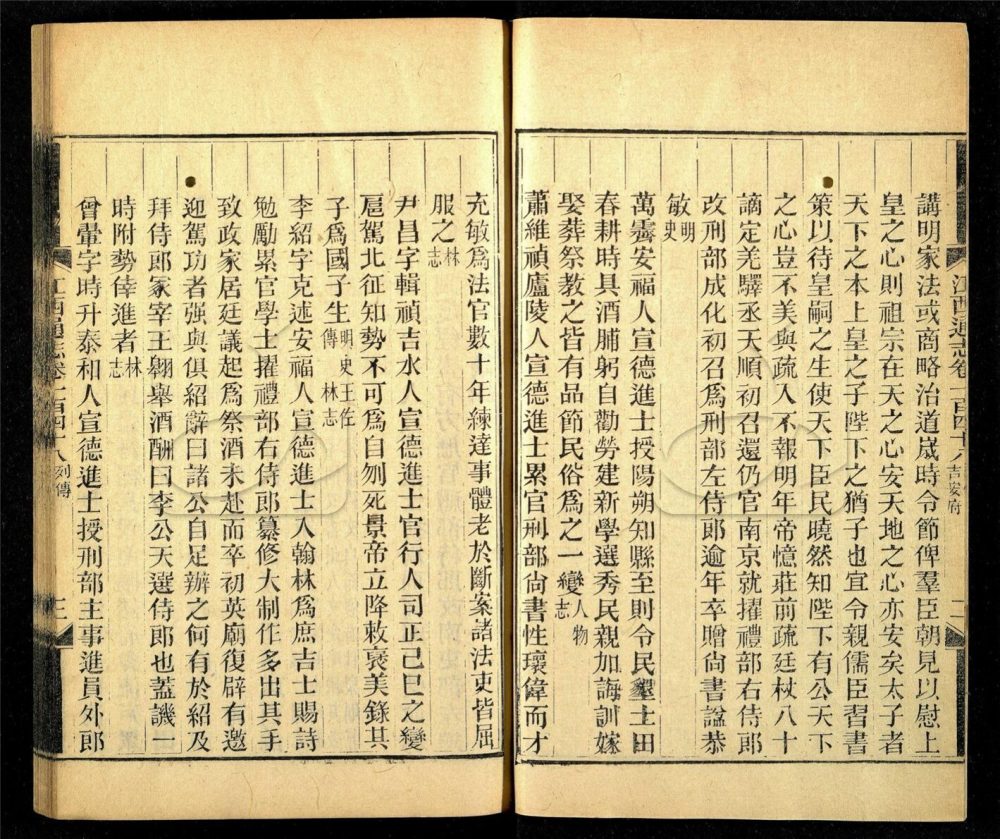 江西通志卷一百四十八 吉安府 二
講明家法或商略治道歲時令節俾羣臣朝見以慰上
皇之心則祖宗在天之心安天地之心亦安矣太子者
天下之本上皇之子陛下之猶子也宜令親儒臣習書
策以待皇嗣之生使天下臣民曉然知陛下有公天下
之心豈不美與疏入不報明年帝憶莊前疏廷杖八十
謫定羌驛丞天順初召還仍官南京就擢禮部右侍郎
改刑部成化初召爲刑部左侍郎逾年卒贈尚書諡恭
敏明史
萬霽安福人宣德進士授陽朔知縣至則令民墾土田
春耕時具酒脯躬自勸勞建新學選秀民親加誨訓嫁
娶葬祭教之皆有品節民俗爲之一變人物志
蕭維禎廬陵人宣德進士累官刑部尚書性瓌偉而才
充敏爲法官數十年練達事體老於斷案諸法吏皆屈
服之林志
尹昌字輯禎吉水人宣德進士官行人司正己巳之變
扈駕北征知勢不可爲自刎死景帝立降敕褒美錄其
子爲國子生明史王佐傳 林志
李紹字克述安福人宣德進士入翰林爲庶吉士賜詩
勉勵累官學士擢禮部右侍郎纂修大制作多出其手
致政家居廷議起爲祭酒未赴而卒初英廟復辟有邀
迎駕功者强與俱紹辭曰諸公自足辦之何有於紹及
拜侍郎家宰王翺舉酒酬曰李公天選侍郎也蓋譏一
時附勢倖進者林志
曾翬字時升泰和人宣德進士授刑部主事進員外郎
江西通志卷一百四十八 列傳 三